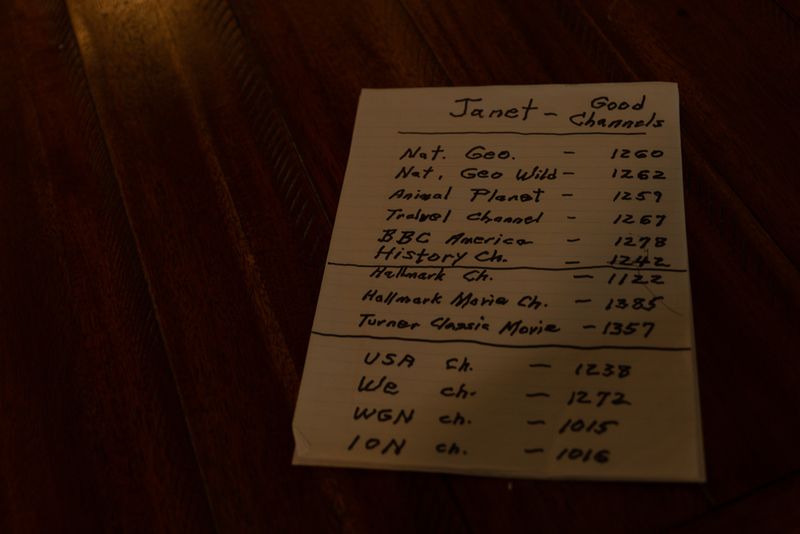 Janet - Good Channels
Nat. Geo. - 1260
Nat. Geo Wild - 1262
Animal Planet - 1259
Travel Channel - 1267
BBC America - 1278
History Ch. - 1242
Hallmark Ch. - 1122
Hallmark Movie Ch. - 1385
Turner Classic Movie - 1357
USA Ch. - 1238
We ch. - 1272
WGN ch. - 1015
ION ch. - 1016